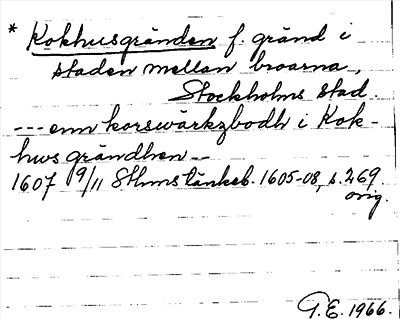 * Kokhusgränden f. gränd i
staden mellan broarna,
Stockholms stad.
--- enn korswärkzbodh i Kok-
hws grändhen --
1607 9/11 Sthms tänkeb. 1605-08, s. 269.
orig.
T.E. 1966.